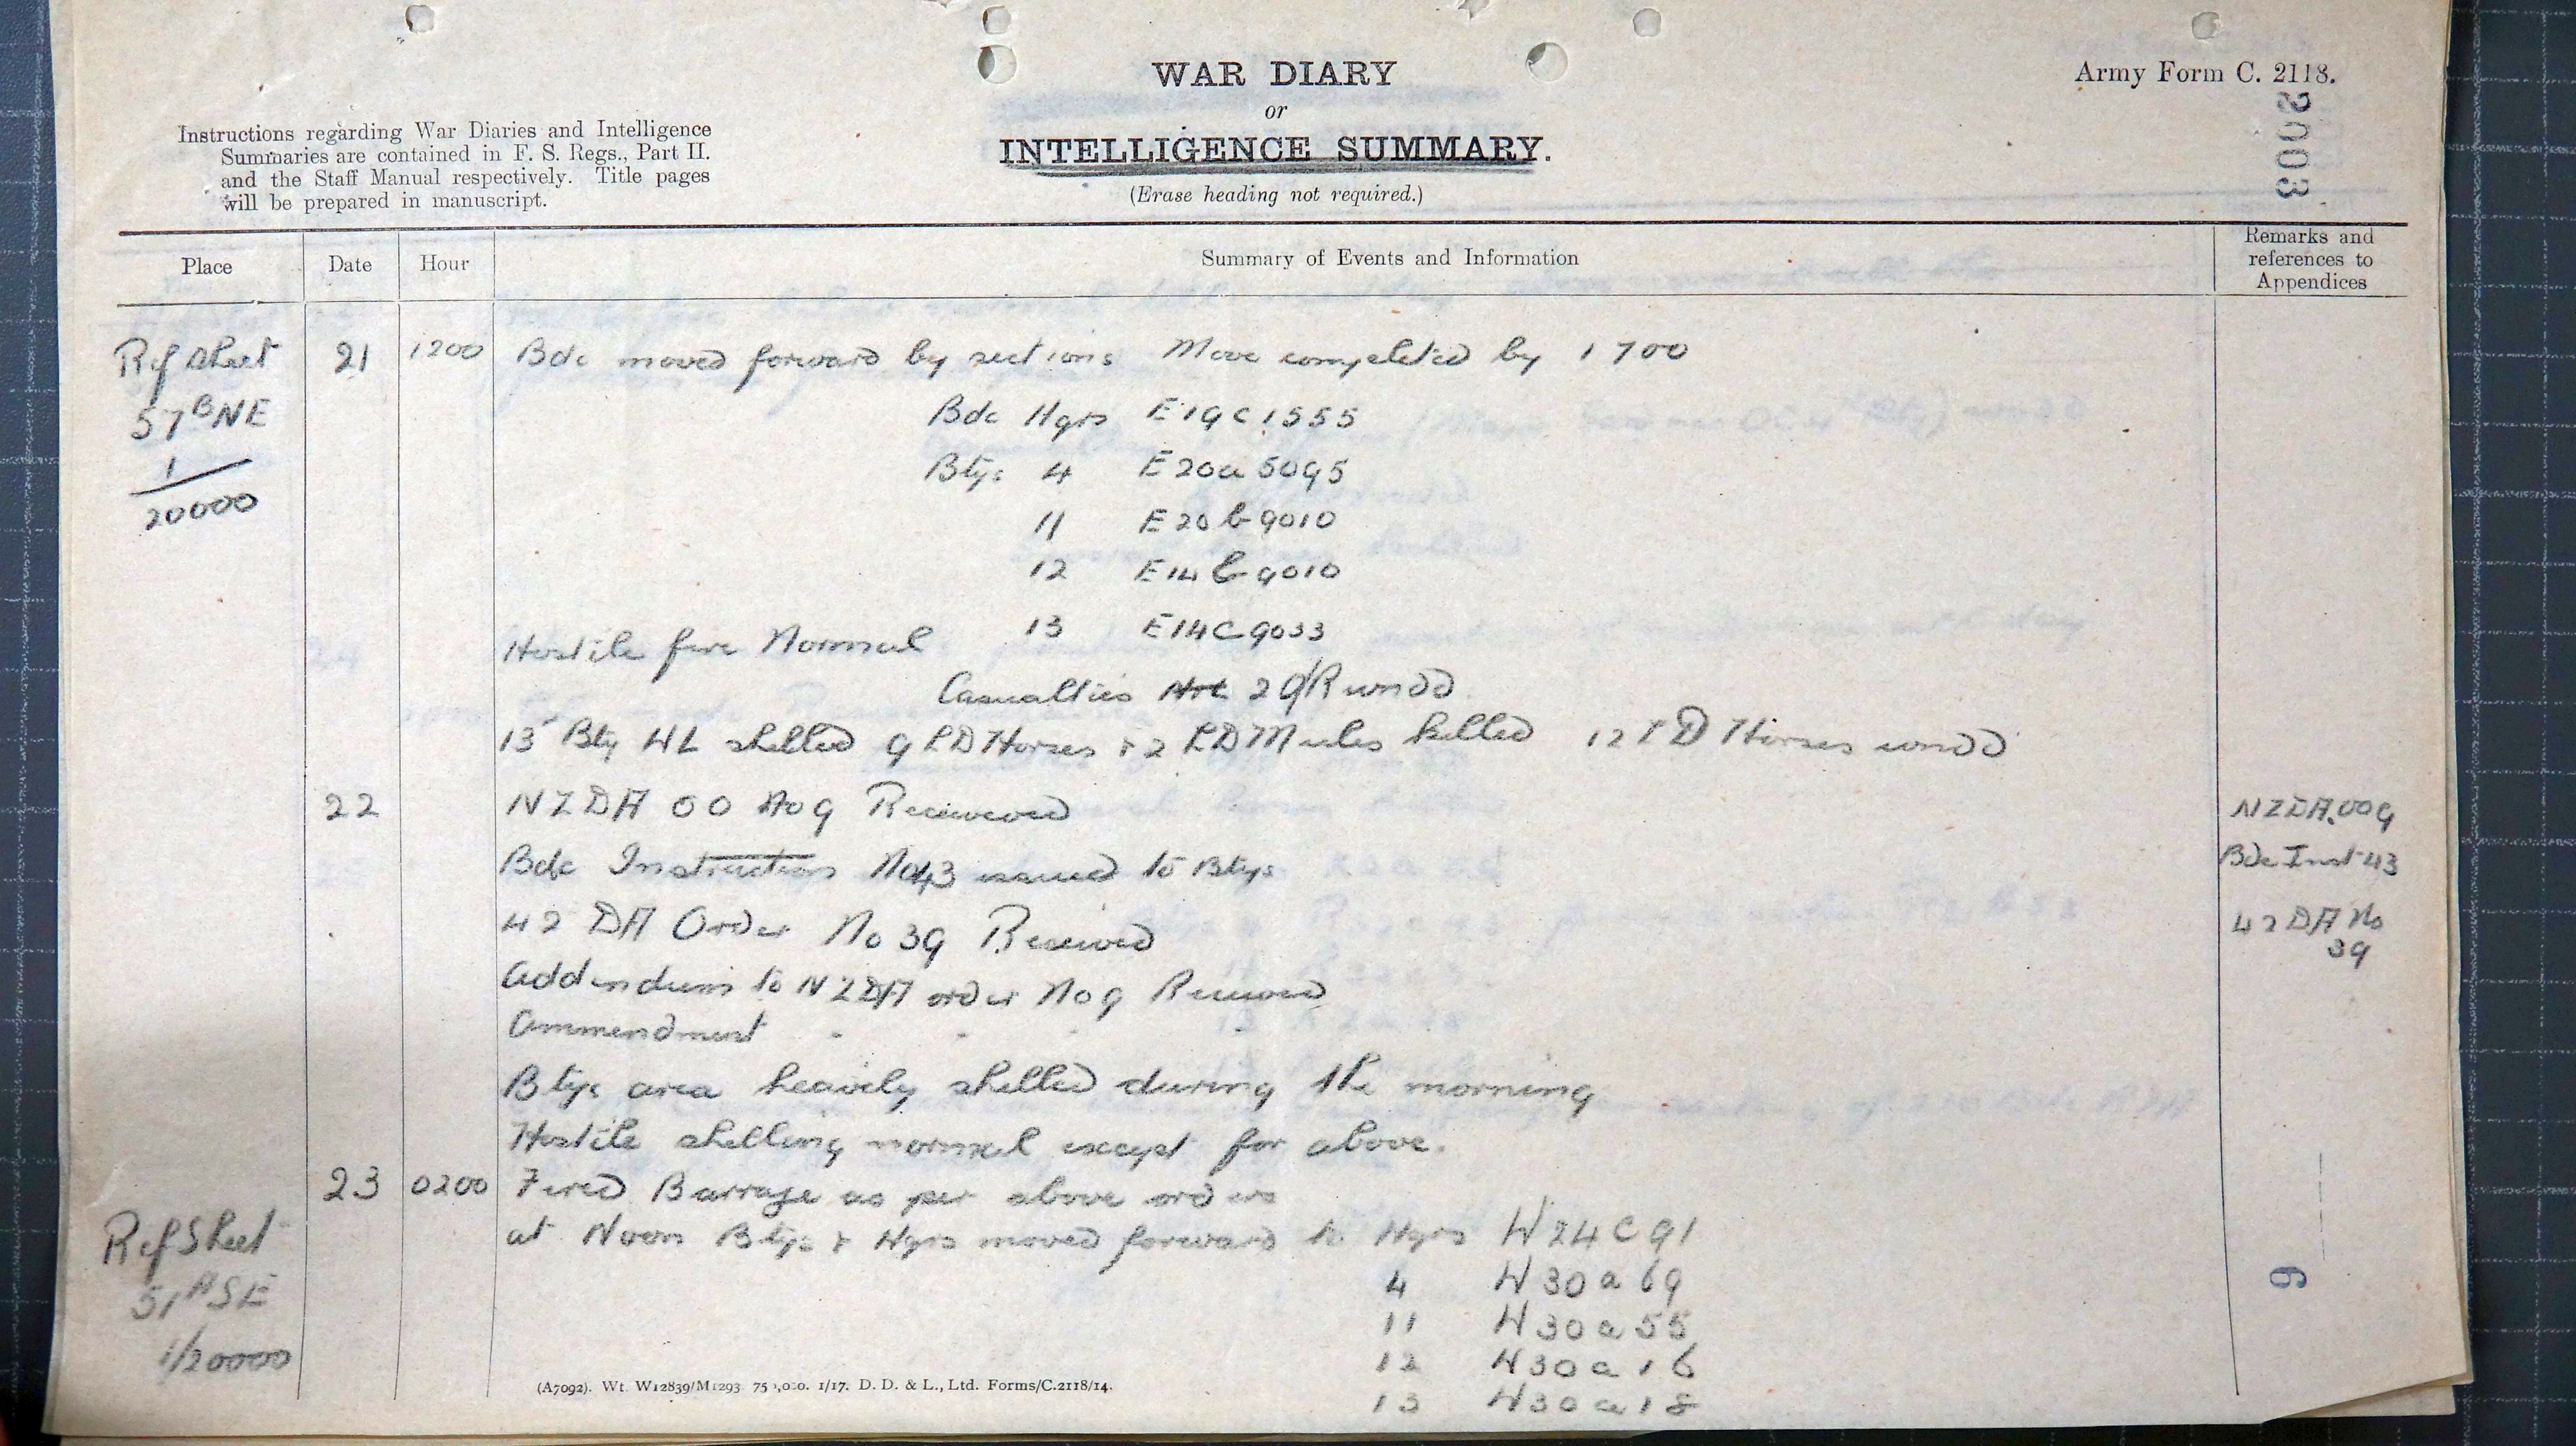 WAR DIARY
or
INTELLIGENCE SUMMARY.
(Erase heading not required.)
Army Form C. 2118.
20003
Instructions regarding War Diaries and Intelligence
Summaries are contained in F. S. Regs., Part II.
and the Staff Manual respectively. Title pages
will be prepared in manuscript.
Place Date Hour Summary of Events and Information Remarks and
references to
Appendices
Ref Sheet 21 1200 Bde moved forward by sections Move completed by 1700
57 B NE Bde Hqrs E19c1555
1/20000 Btys 4 E20a 5095
11 E20b9010
12 E14b9010
13 E14C9033
Hostile fire Normal
Casualties 2 O/R wndd
13 Bty WL shelled 9 LD Horses & 2 LD Mules killed 12 LD Horses wndd
22 NZDA OO No 9 Receiveved NZDA.OO9
Bde Instruction No43 issued to Btys Bde Inst 43
42 DA Order No 39 Received 42 DA No
39
Addendum to NZDA order No 9 Received
Ammendment " " " "
Btys area heavily shelled during the morning
Hostile shelling normal except for above.
23 0200 Fired Barrage as per above orders
Ref Sheet at Noon Btys & Hqrs moved forward to Hqrs W24C91
51 A SE 4 W30a69
1/20000 11 W30a55
12 W30a16
13 W30a18
6
(A7092). Wt. W12839/M1293. 750,000. 1/17. D. D. & L., Ltd. Forms/C.2118/14.